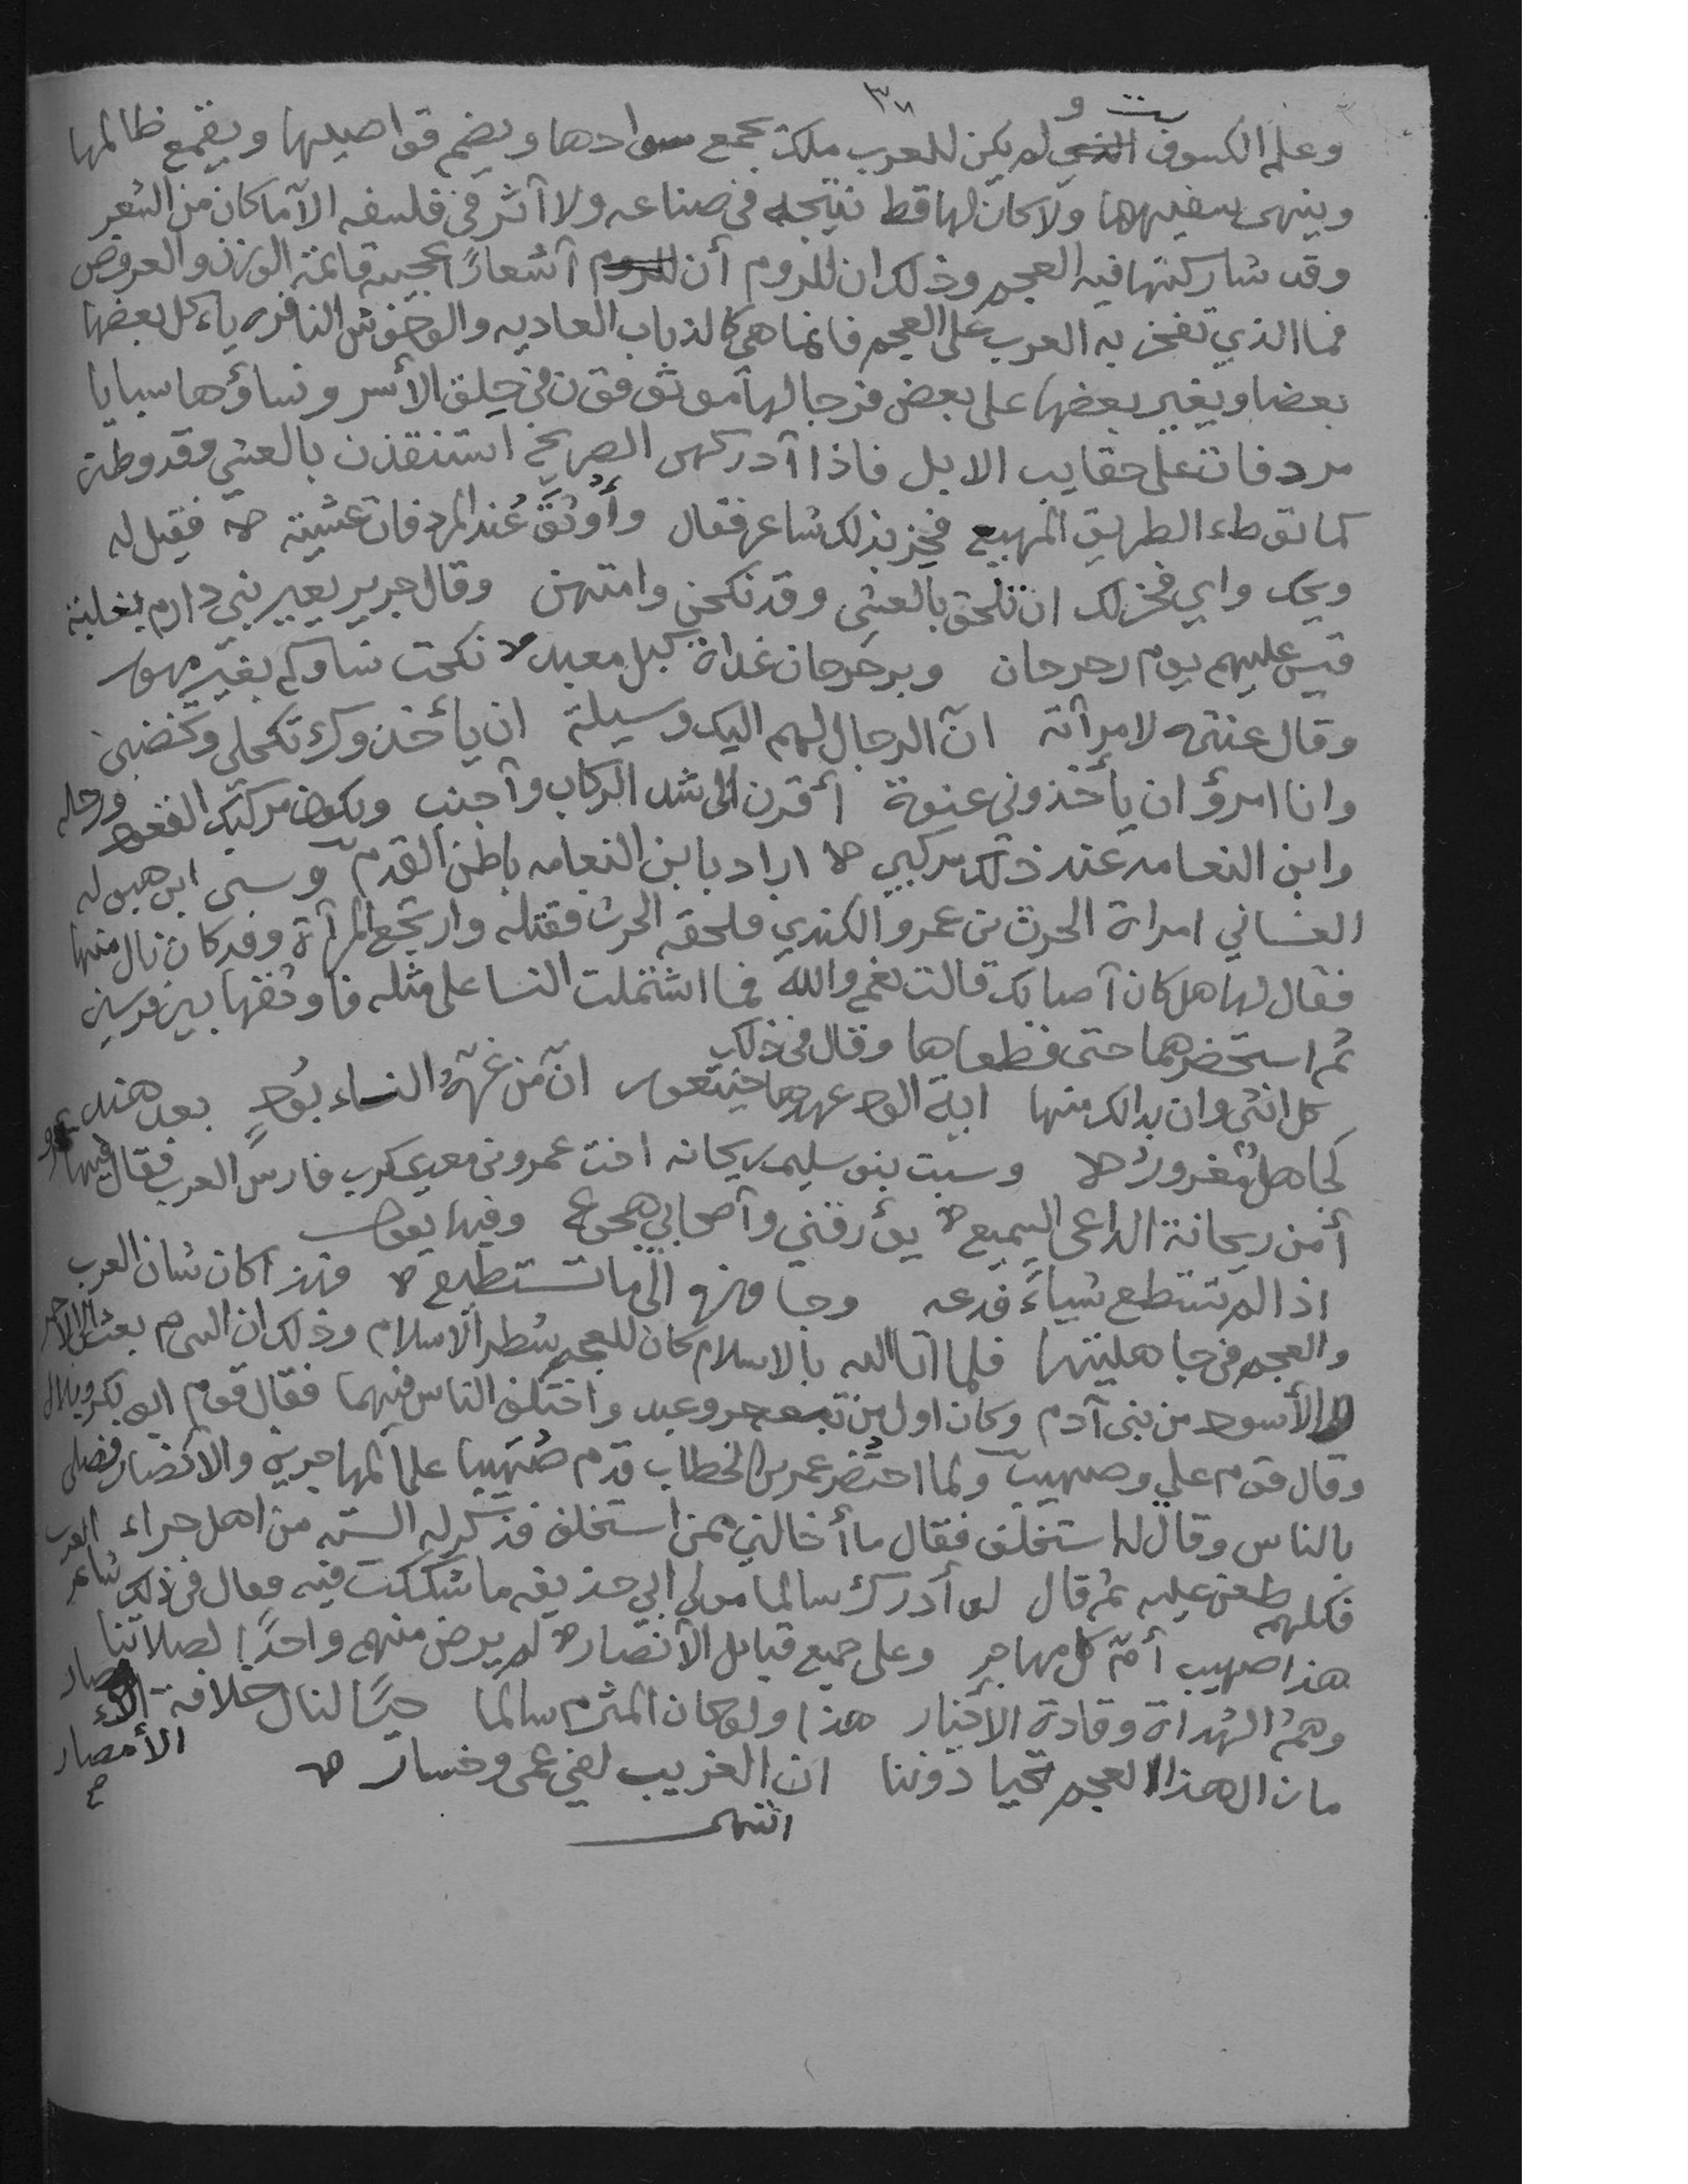 ٣٧
وعلم الكسوف لم يكن للعرب ملك يجمع سوادها ويضم قواصيها ويقمع ظالمها
وينهى سفيهها ولا كان لها قط نتيجه في صناعه ولا أثر في فلسفه الا ما كان من الشعر
وقد شاركتها فيه العجم وذلك ان للروم أن للروم أشعارًا عجيبه قائمة الوزن والعروض
فما الذي تفخر به العرب على العجم فانما هي كالذياب العاديه والوحوش النافره ياءكل بعضها
بعضا ويغير بعضها على بعض فرجالها موثوقون في حلق الأسر ونساؤها سبايا
مردفات على حقايب الابل فاذا أدركهن الصريخ استنقذن بالعشي وقد وطئن
كما توطاء الطريق المهيع فخر بذلك شاعر فقال وأوثق عند المردفات عشية فقيل له
ويحك واي فخر لك ان تلحق بالعشي وقد نكحن وامتهن وقال جرير يعير بني دارم بغلبة
قيس عليهم يوم رحرحان وبرحرحان غداة كبل معبد نكحت نساوكم بغير مهور
وقال عنتره لامرأته ان الرجال لهم اليك وسيلة ان يأخذوك تكحلي وتخضبي
وانا امرؤ ان يأخذوني عنوة أقرن الى شد الركاب وأجنب ويكون مركبك القعود ورحله
وابن النعامه عند ذلك مركبي اراد بابن النعامه باطن القدم وسبى ابن هبوله
الغساني امراة الحرث بن عمرو الكندي فلحقه الحرث فقتله وارتجع المرأة وقد كان نال منها
فقال لها هل كان أصابك قالت نعم والله فما اشتملت النسا على مثله فاوثقها بين فرسين
ثم استحضرهما حتى قطعاها وقال في ذلك
كل انثى وان بدا لك منها اية الود عهدها خيتعور ان من غره النساء بود بعد هند
لجاهل مغرور وسبت بنو سليم ريحانه اخت عمرو بن معديكرب فارس العرب فقال فيها عمرو
أمن ريحانة الداعي السميع يؤرقني وأصحابي هجوع وفيها يقول
اذا لم تستطع شياءً فدعه وجاوزه الى ما تستطيع فهذا كان شان العرب
والعجم في جاهليتها فلما اتا الله بالاسلام كان للعجم شطر الاسلام وذلك ان النبي م بعث الى الاحمر
والأسود من بني آدم وكان اول من تبعه حر وعبد واختلف الناس فيهما فقال قوم ابو بكر وبلال
وقال قوم علي وصهيب ولما احتضر عمر بن الخطاب قدم صهيبا على المهاجرين والانصار فصلى
بالناس وقال له استخلف فقال ما أخالني ممن استخلف فذكر له الستة من اهل حراء
فكلهم طعن عليه ثم قال لو أدركت سالما مولى ابي حذيفه ما شككت فيه فقال في ذلك شاعر العرب
هذا صهيب أم كل مهاجر وعلى جميع قبايل الأنصار لم يرض منهم واحدًا لصلاتنا
وهم الهداة وقادة الاخيار هذا ولو كان المثرم سالما حيًا لنال خلافة
الأمصار
ما زال هذا العجم تحيا دوننا ان الغريب لفي عمى وخسار
انتهى